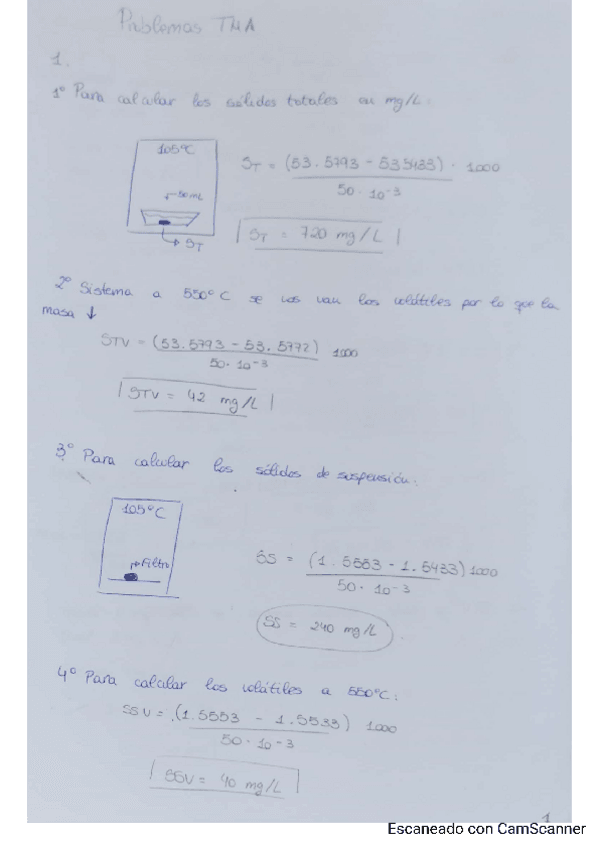 Problemas TMA
1.
1º Para calcular los sólidos totales en mg/L.
105ºC
50 mL
ST
ST = (53.5793 - 53.5433) · 1000
50 · 10-3
ST = 720 mg/L
2º Sistema a 550ºC se nos van los volátiles por lo que la
masa ↓
STV = (53.5793 - 53.5772) 1000
50 · 10-3
STV = 42 mg/L
3º Para calcular los sólidos de suspensión.
105ºC
Filtro
SS = (1.5553 - 1.5433) 1000
50 · 10-3
SS = 240 mg/L
4º Para calcular los volátiles a 550ºC:
SSV = (1.5553 - 1.5533) 1000
50 · 10-3
SSV = 40 mg/L
1
Escaneado con CamScanner